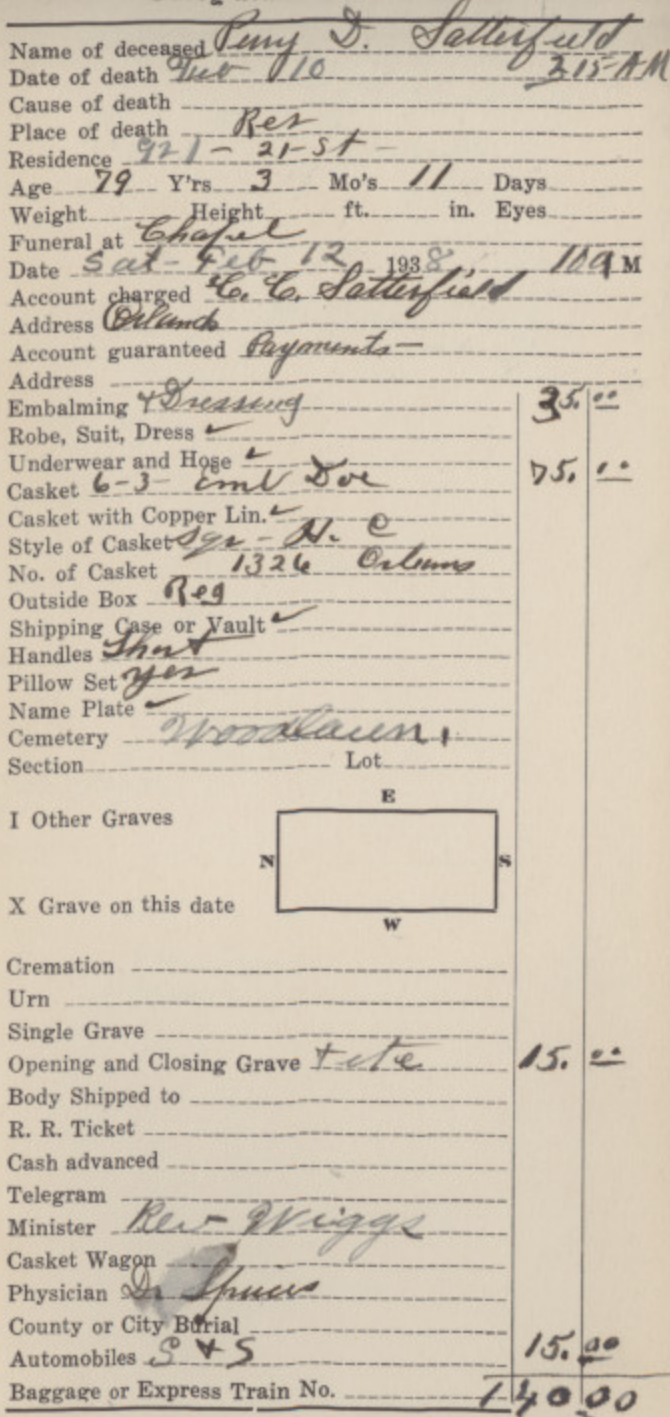 Name of deceased Perry D. Satterfield
Date of death Feb 10 2 15 AM
Cause of death
Place of death Res
Residence 921 - 21-st -
Age 79 Y'rs 3 Mo's 11 Days
Weight Height ft. in. Eyes
Funeral at Chapel
Date Sat - Feb 12 1938 10 a M
Account charged C. C. Satterfield
Address Orlando
Account guaranteed Payments -
Address
Embalming & Dressing 35. 00
Robe, Suit, Dress ✓
Underwear and Hose ✓
Casket 6-3 Eml Doe 75. 00
Casket with Copper Lin. ✓
Style of Casket Sqr - H. C
No. of Casket 1326 Orleans
Outside Box Reg
Shipping Case or Vault ✓
Handles Short
Pillow Set yes
Name Plate ✓
Cemetery Woodlawn,
Section Lot
E
I Other Graves
N S
X Grave on this date
W
Cremation
Urn
Single Grave
Opening and Closing Grave + etc 15. 00
Body Shipped to
R. R. Ticket
Cash advanced
Telegram
Minister Rev - Wiggs
Casket Wagon
Physician Dr
County or City Burial
Automobiles S & S 15. 00
Baggage or Express Train No. 140 00